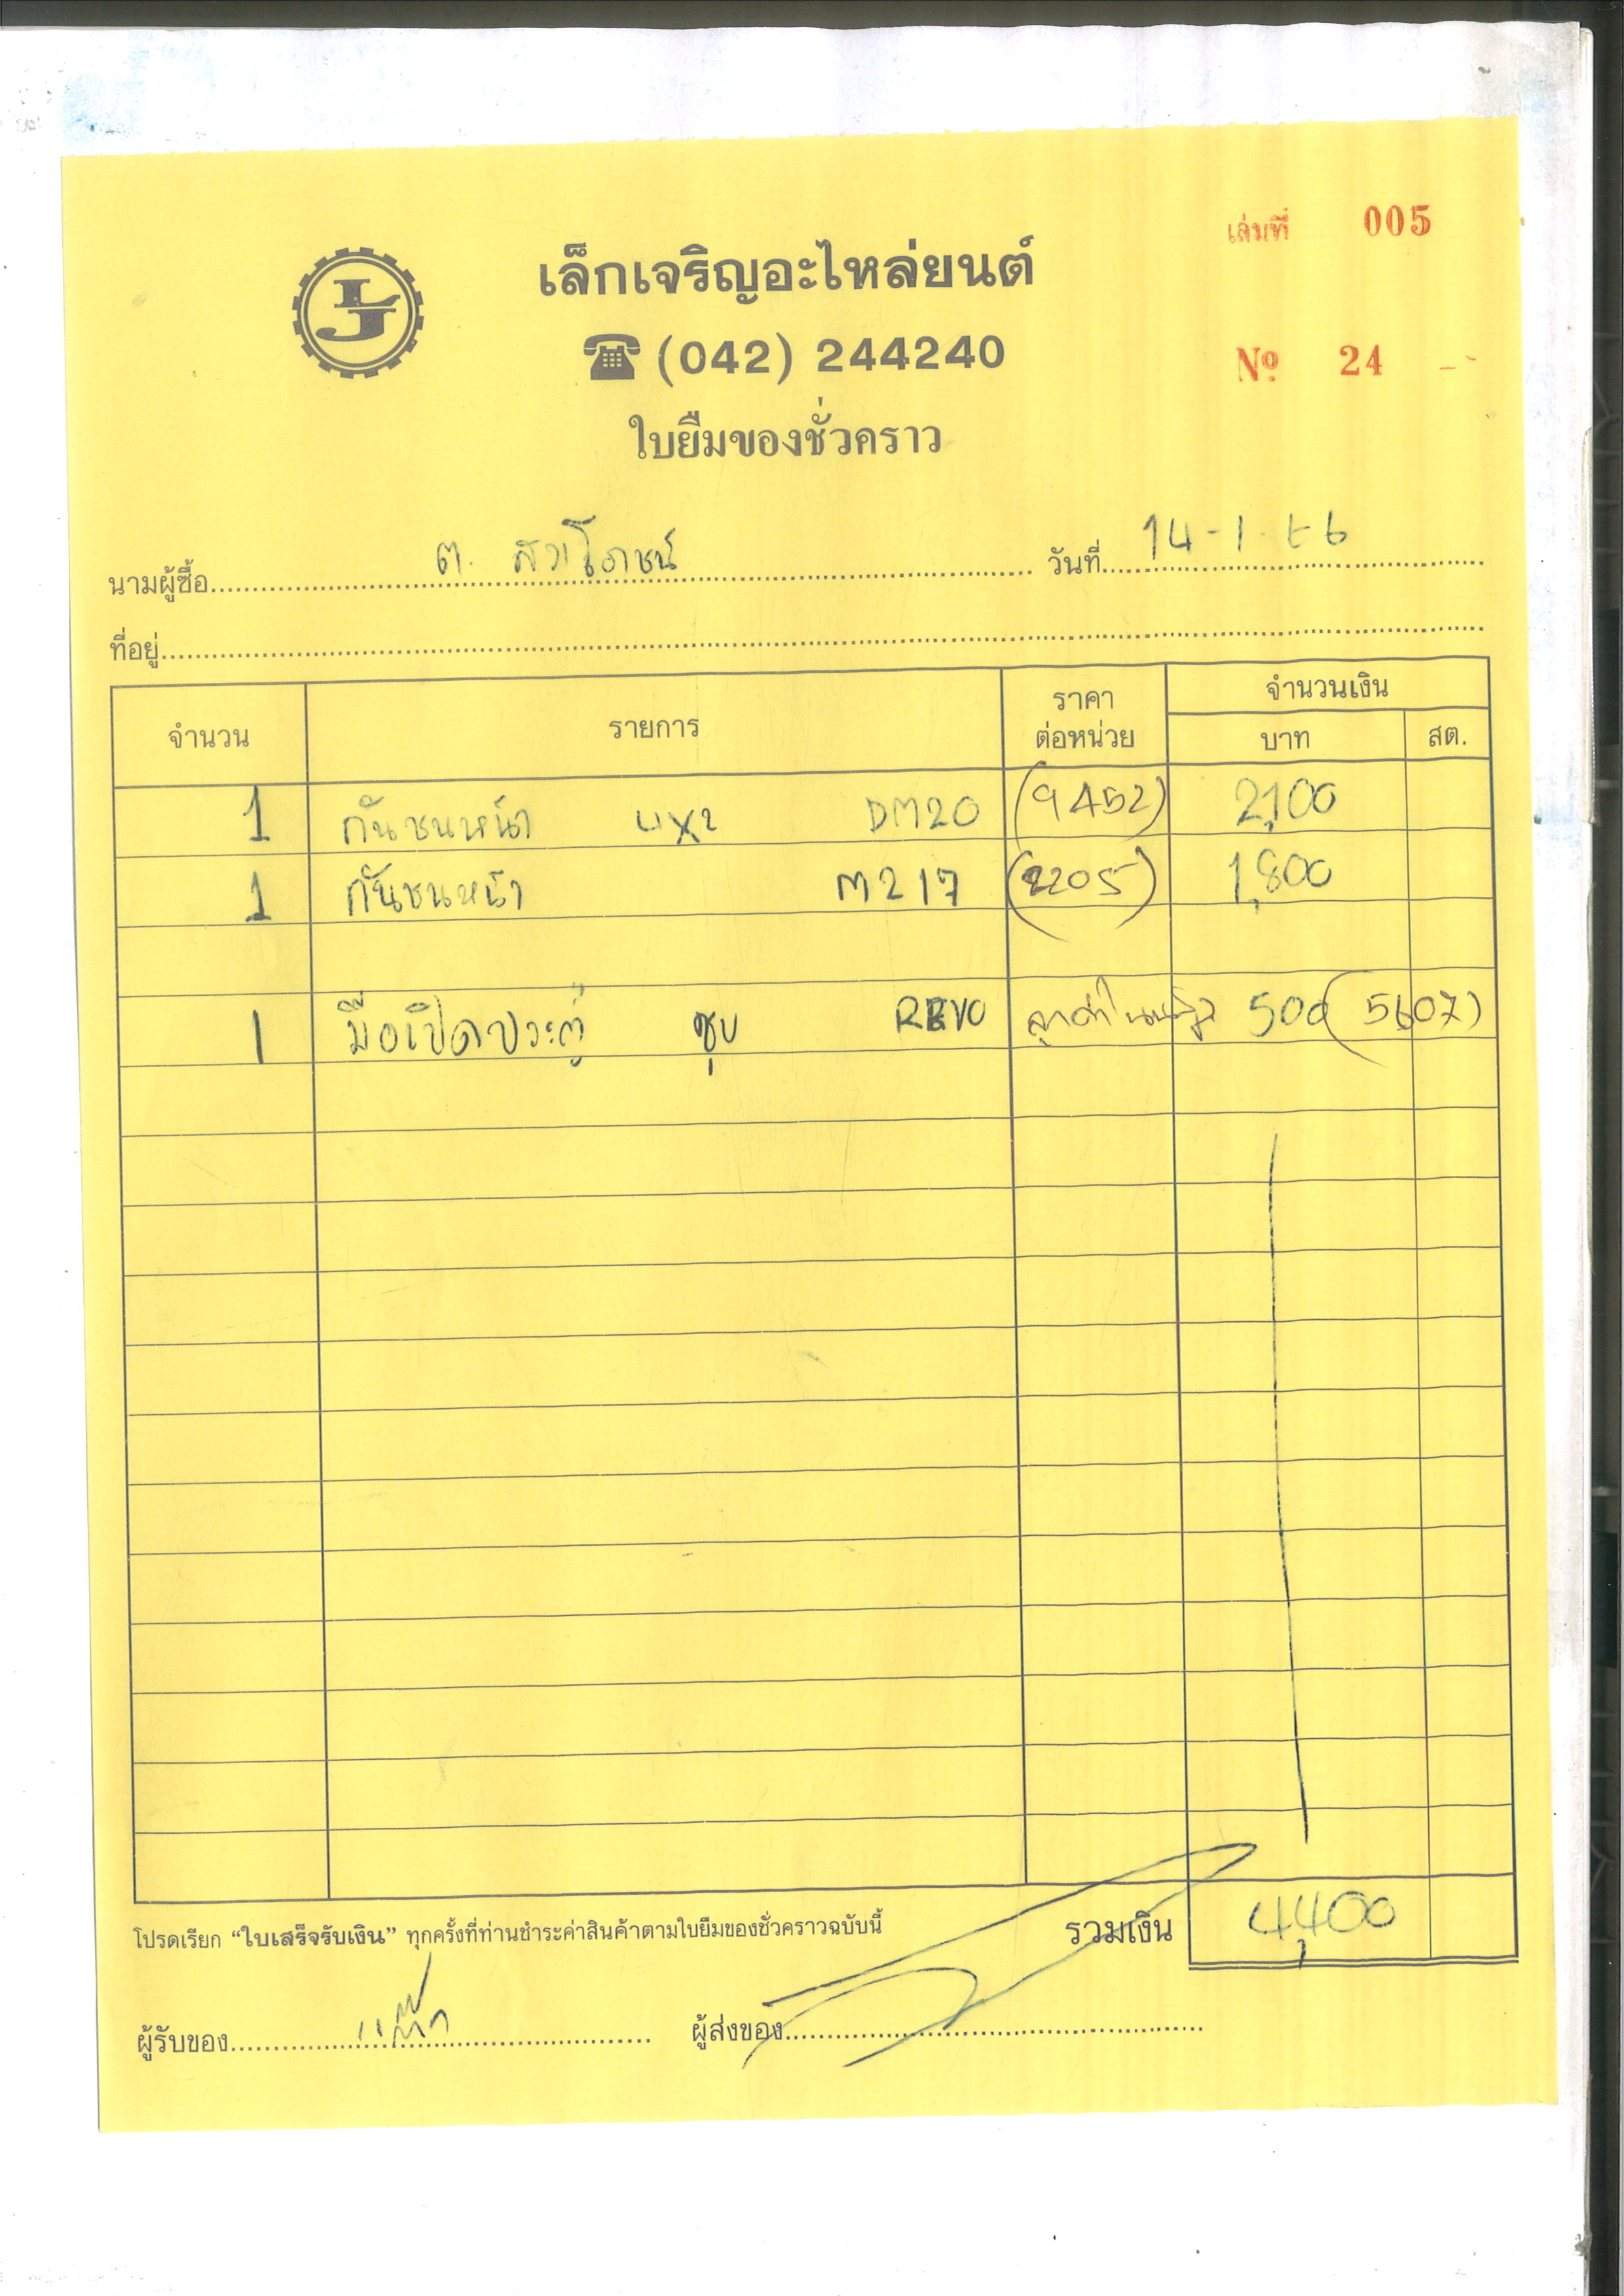 เล่มที่ 005
LJ
เล็กเจริญอะไหล่ยนต์
☎ (042) 244240
Nº 24
ใบยืมของชั่วคราว
นามผู้ซื้อ ต. วันที่ 14-1-66
ที่อยู่
จำนวน รายการ ราคาต่อหน่วย จำนวนเงิน
บาท สต.
1 กันชนหน้า 4x2 DM20 (9452) 2,100
1 กันชนหน้า M217 (2205) 1,800
1 มือเปิดประตู ชุบ REVO 500 (5607)
โปรดเรียก “ใบเสร็จรับเงิน” ทุกครั้งที่ท่านชำระค่าสินค้าตามใบยืมของชั่วคราวฉบับนี้ รวมเงิน 4,400
ผู้รับของ ผู้ส่งของ